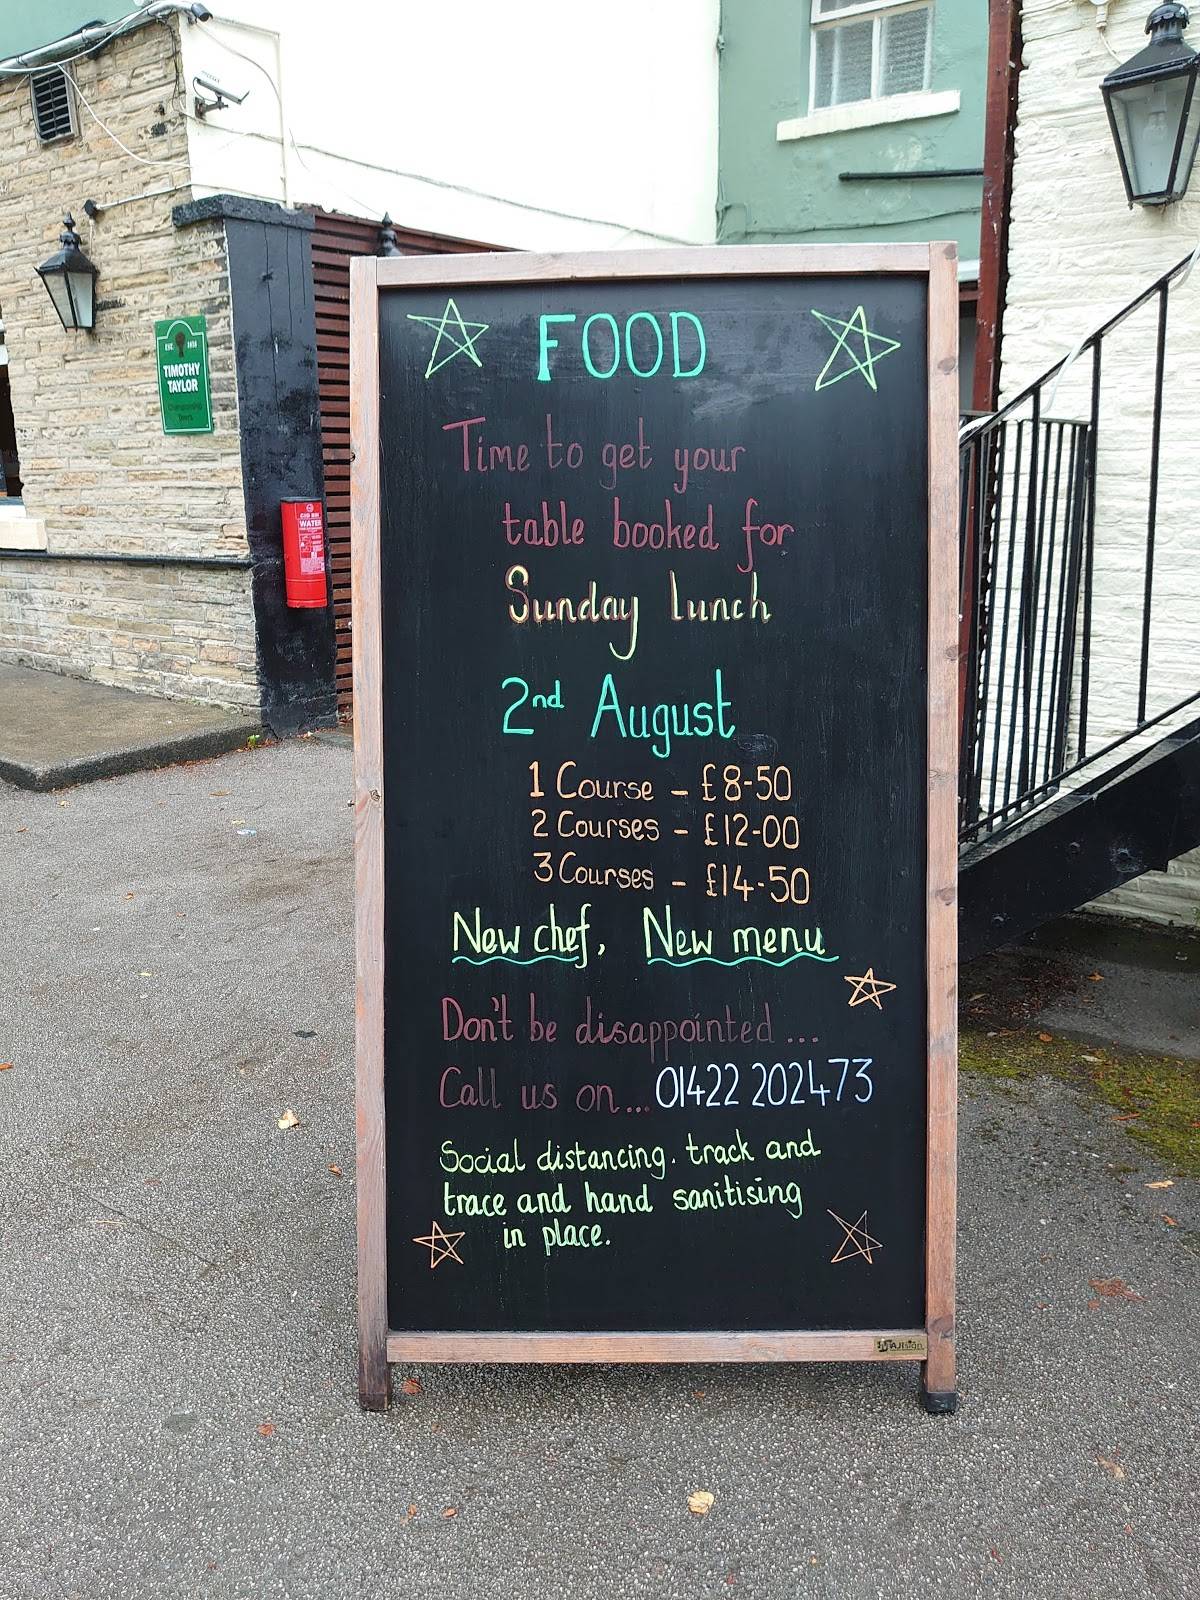 FOOD
Time to get your
table booked for
Sunday lunch
2nd August
1 Course - £8-50
2 Courses - £12-00
3 Courses - £14-50
New chef, New menu
Don't be disappointed...
Call us on... 01422 202473
Social distancing. track and
trace and hand sanitising
in place.
EST. 1858
TIMOTHY
TAYLOR
Championship
Beers
WATER